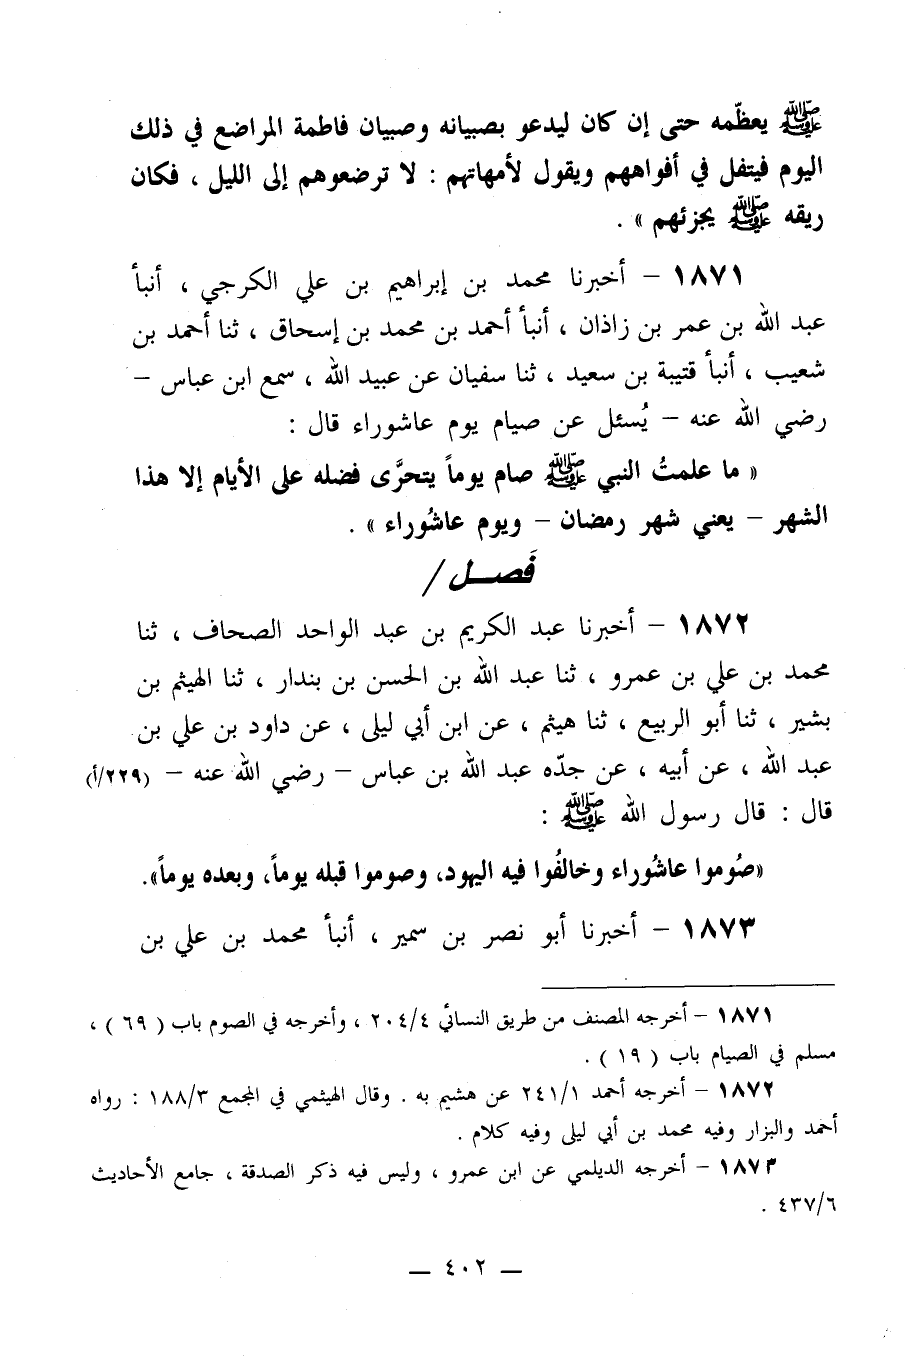 ﷺ يعظّمه حتى إن كان ليدعو بصبيانه وصبيان فاطمة المراضع في ذلك
اليوم فيتفل في أفواههم ويقول لأمهاتهم : لا ترضعوهم إلى الليل ، فكان
ريقه ﷺ يجزئهم » .
١٨٧١ – أخبرنا محمد بن إبراهيم بن علي الكرجي ، أنبأ
عبد الله بن عمر بن زاذان ، أنبأ أحمد بن محمد بن إسحاق ، ثنا أحمد بن
شعيب ، أنبأ قتيبة بن سعيد ، ثنا سفيان عن عبيد الله ، سمع ابن عباس –
رضي الله عنه – يُسئل عن صيام يوم عاشوراء قال :
« ما علمتُ النبي ﷺ صام يوماً يتحرَّى فضله على الأيام إلا هذا
الشهر – يعني شهر رمضان – ويوم عاشُوراء » .
فَصـــل /
١٨٧٢ – أخبرنا عبد الكريم بن عبد الواحد الصحاف ، ثنا
محمد بن علي بن عمرو ، ثنا عبد الله بن الحسن بن بندار ، ثنا الهيثم بن
بشير ، ثنا أبو الربيع ، ثنا هيثم ، عن ابن أبي ليلى ، عن داود بن علي بن
عبد الله ، عن أبيه ، عن جدّه عبد الله بن عباس – رضي الله عنه – (٢٢٩/أ)
قال : قال رسول الله ﷺ :
«صُوموا عاشُوراء وخالفُوا فيه اليهود، وصوموا قبله يوماً، وبعده يوماً».
١٨٧٣ – أخبرنا أبو نصر بن سمير ، أنبأ محمد بن علي بن
١٨٧١ – أخرجه المصنف من طريق النسائي ٢٠٤/٤ ، وأخرجه في الصوم باب ( ٦٩ ) ،
مسلم في الصيام باب ( ١٩ ) .
١٨٧٢ – أخرجه أحمد ٢٤١/١ عن هشيم به . وقال الهيثمي في المجمع ١٨٨/٣ : رواه
أحمد والبزار وفيه محمد بن أبي ليلى وفيه كلام .
١٨٧٣ – أخرجه الديلمي عن ابن عمرو ، وليس فيه ذكر الصدقة ، جامع الأحاديث
٤٣٧/٦ .
— ٤٠٢ —